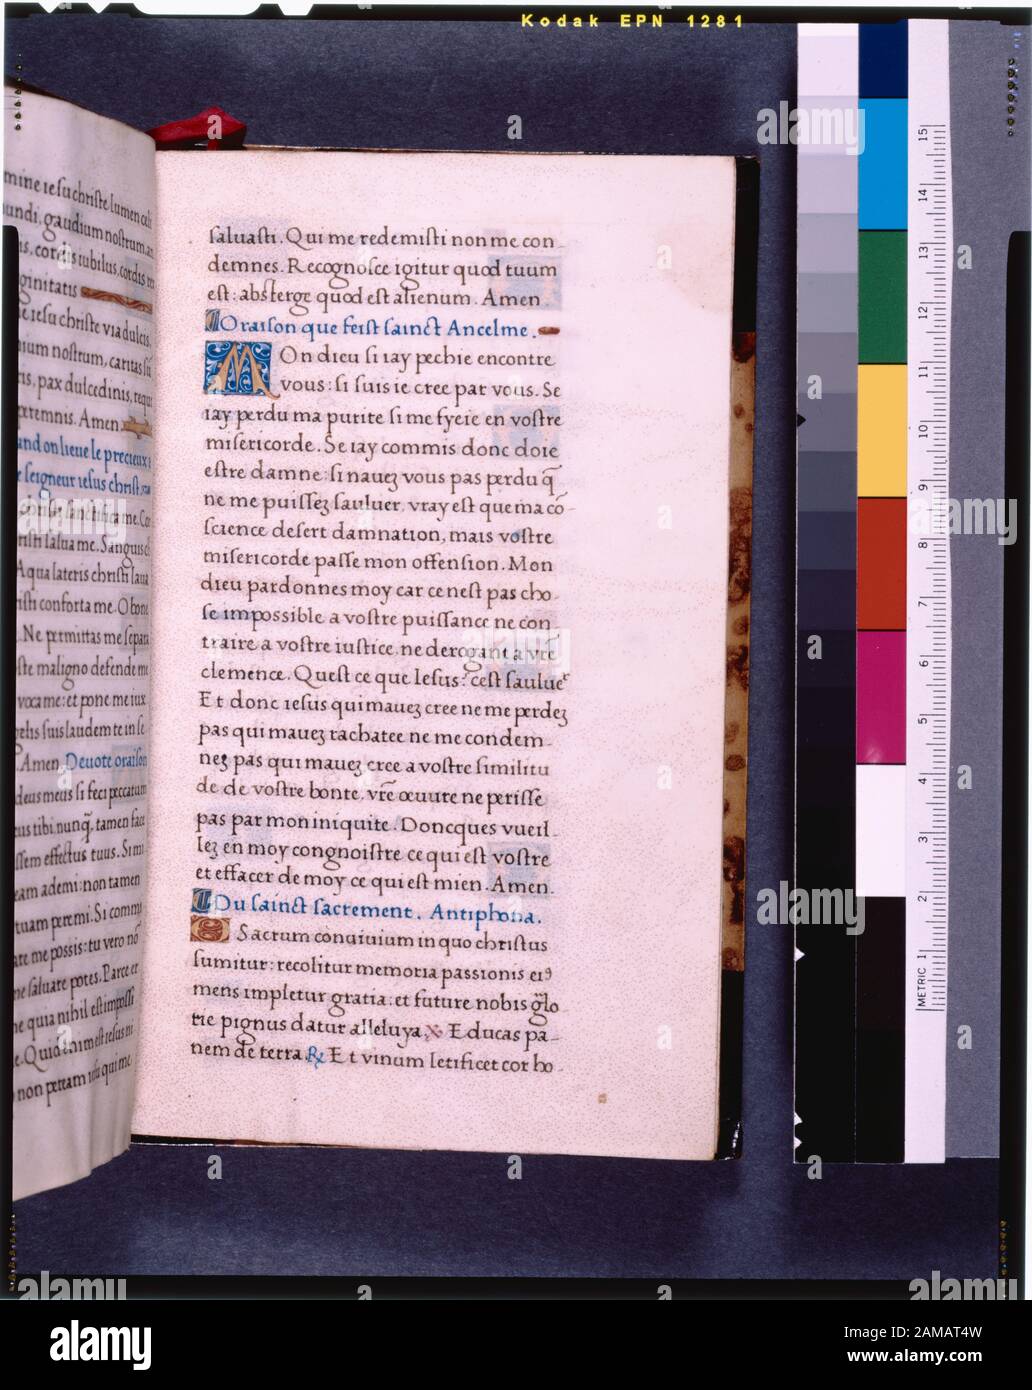 Kodak EPN 1281
mine iesu christe lumen celi
undi, gaudium nostrum, an
is, cordis iubilus, cordis
ginitatis
ne iesu christe via dulcis,
ium nostrum, caritas
is, pax dulcedinis, requi
peremnis. Amen
and on lieue le precieux
e seigneur iesus christ
christi sanctifica me. Cor
risti salua me. Sanguis ch
Aqua lateris christi laua
risti conforta me. O bone
. Ne permittas me separa
ste maligno defende me
voca me: et pone me iux
gelis suis laudem te in se
. Amen. Deuote oraison
deus meus si feci peccatum
uus tibi. nunq̃, tamen face
ssem effectus tuus. Si mi
eam ademi: non tamen
tuam peremi. Si commi
are me possis: tu vero nõ
me saluare potes. Parce er
ne quia nihil est impossi
e. Quid enim est iesus ni
non peream ipsi qui me
saluasti. Qui me redemisti non me con-
demnes. Recognosce igitur quod tuum
est: absterge quod est alienum. Amen
Oraison que feist sainct Ancelme.
MOn dieu si iay pechie encontre
vous: si suis ie cree par vous. Se
iay perdu ma purite si me fyeie en vostre
misericorde. Se iay commis donc doie
estre damne: si nauez vous pas perdu q̃
ne me puissez sauluer. vray est que ma cõ-
science desert damnation, mais vostre
misericorde passe mon offension. Mon
dieu pardonnes moy car ce nest pas cho-
se impossible a vostre puissance ne con-
traire a vostre iustice. ne derogant a vr̃e
clemence. Quest ce que Iesus: cest sauluer
Et donc iesus qui mauez cree ne me perdez
pas qui mauez rachatee ne me condem-
nez pas qui mauez cree a vostre similitu
de de vostre bonte. vr̃e œuure ne perisse
pas par mon iniquite. Doncques vueil-
lez en moy congnoistre ce qui est vostre
et effacer de moy ce qui est mien. Amen.
Du sainct sacrement. Antiphona.
O Sacrum conuiuium in quo christus
sumitur: recolitur memoria passionis eiꝰ
mens impletur gratia: et future nobis gl̃o
rie pignus datur alleluya. ℣ Educas pa-
nem de terra. ℟ Et vinum letificet cor ho-
15
14
13
12
11
10
9
8
7
6
5
4
3
2
METRIC 1
alamy
alamy
Image ID: 2AMAT4W
www.alamy.com